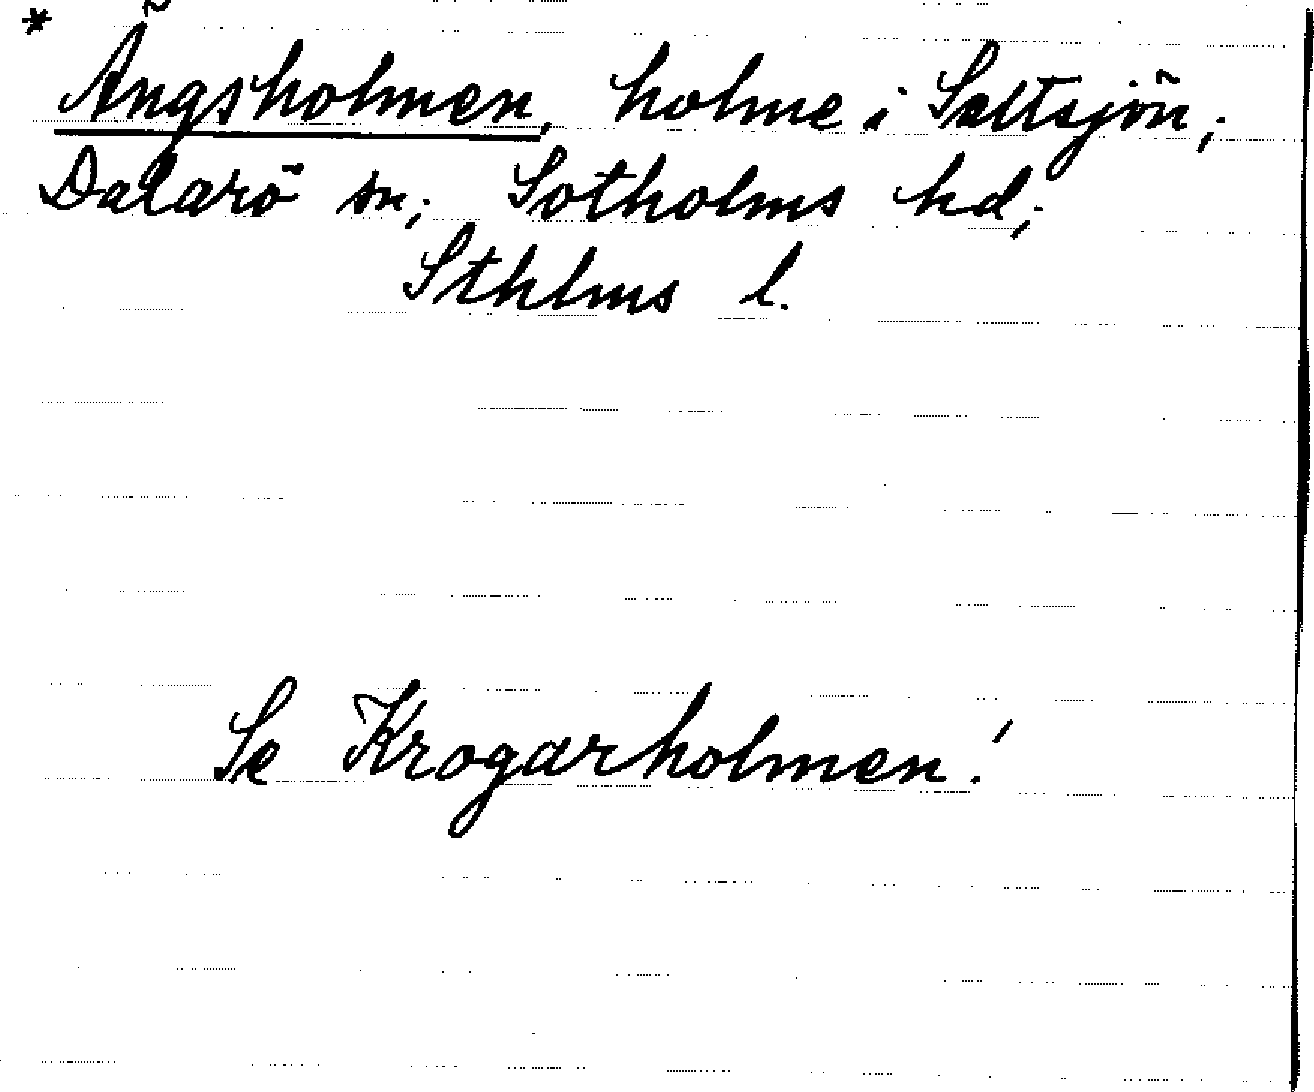 *
Ängsholmen, holme i Saltsjön;
Dalarö sn; Sotholms hd;
Sthlms l.
Se Krogarholmen!